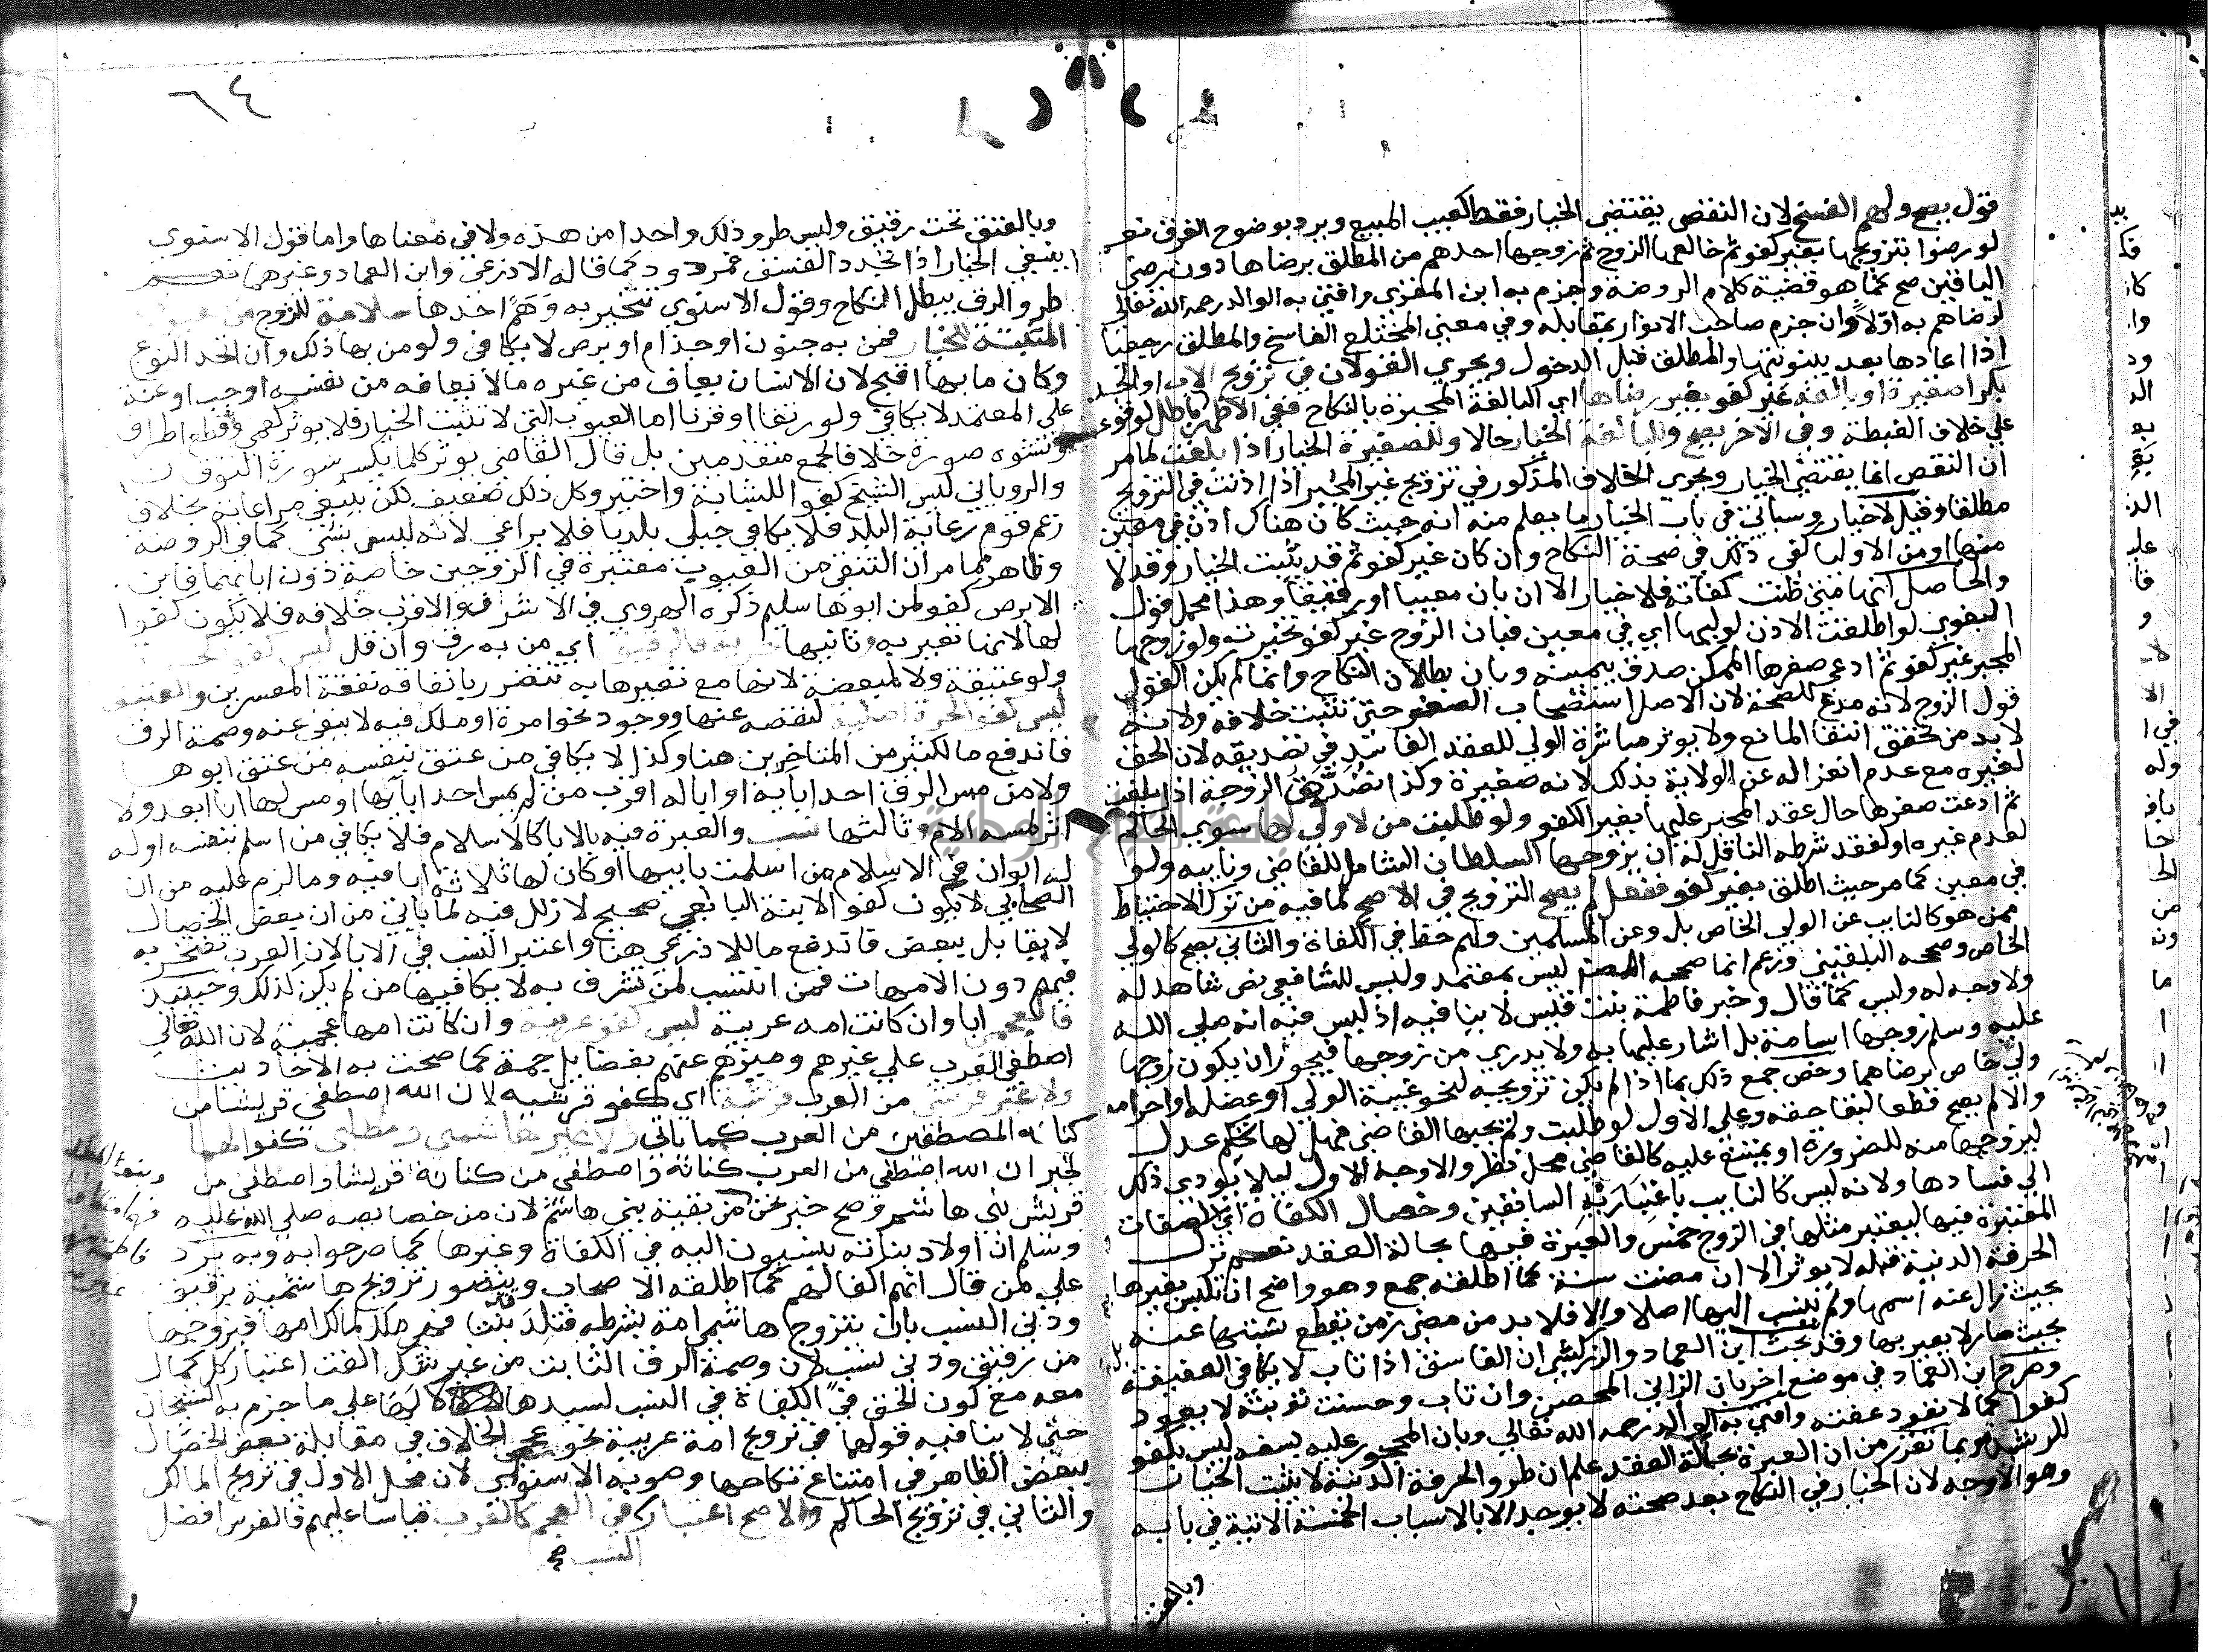 قول يصح ولهم الفسخ لان النقص يقتضي الخيار فقط كعيب المبيع ويرد بوضوح الفرق نعم
لو رضوا بتزويجها بغير كفو ثم خالعها الزوج ثم زوجها احدهم من المطلق برضاها دون رضى
الباقين صح كما هو قضية كلام الروضة وجزم به ابن المقري وافتى به الوالد رحمه الله تعالى
لرضاهم به اولا وان جزم صاحب الانوار بمقابله وفي معنى المختلع الفاسخ والمطلق رجعيا
اذا اعادها بعد بينونتها والمطلق قبل الدخول ويجري القولان في تزويج الاب او الجد
بكرا صغيرة او بالغة غير كفو بغير رضاها اي البالغة المجبرة بالنكاح ففي الاظهر باطل لوقوعه
على خلاف الغبطة وفي الاخر يصح وللبالغة الخيار حالا وللصغيرة الخيار اذا بلغت لما مر
ان النقص انما يقتضي الخيار ويجري الخلاف المذكور في تزويج غير المجبر اذا اذنت في التزويج
مطلقا وقيل لاخيار وسياتي في باب الخيار ما يعلم منه انه حيث كان هناك اذن في معين
منها او من الاوليا كفى ذلك في صحة النكاح وان كان غير كفو ثم قد يثبت الخيار وقد لا
والحاصل انها متى ظنت كفاته فلا خيار الا ان بان معيبا او رقيقا وهذا محمل قول
البغوي لو اطلقت الاذن لوليها اي في معين فبان الزوج غير كفو تخيرت ولو زوجها
المجبر غير كفو ثم ادعى صغرها الممكن صدق بيمينه وبان بطلان النكاح وانما لم يكن القول
قول الزوج لانه مدع للصحة لان الاصل استصحاب الصغر حتى تثبت خلافه ولانه
لابد من تحقق انتفا المانع ولا يوثر مباشرة الولي للعقد الفاسد في تصديقه لان الحق
لغيره مع عدم انعزاله عن الولاية بذلك لانه صغيرة وكذا تصدق الزوجة اذا بلغت
ثم ادعت صغرها حال عقد المجبر عليها بغير الكفو ولو طلبت من لا ولي لها سوى الحاكم
لعدم غيره او لفقد شرطه الناقل له ان يزوجها السلطان الشامل للقاضي ونايبه ولو
في معين كما مر حيث اطلق بغير كفو ففعل لم يصح التزويج في الاصح لما فيه من ترك الاحتياط
ممن هو كالنايب عن الولي الخاص بل وعن المسلمين ولهم حظ في الكفاة والثاني يصح كالولي
الخاص وصححه البلقيني وزعم انما صححه المصنف ليس بمعتمد وليس للشافعي نص شاهد له
ولا وجه له وليس كما قال وخبر فاطمة بنت قيس لا ينافيه اذ ليس فيه انه صلى الله
عليه وسلم زوجها اسامة بل اشار عليها به ولا يدري من زوجها فيجوز ان يكون زوجها
ولي خاص برضاهما وخص جمع ذلك بما اذا لم يكن تزويجه لنحو غيبة الولي او عضله او احرامه
والا لم يصح قطعا لبقا حقه وعلى الاول لو طلبت ولم يجبها القاضي فهل لها تحكيم عدل
ليزوجها منه للضرورة او يمتنع عليه كالقاضي محل نظر والاوجه الاول ليلا يودي ذلك
الى فسادها ولانه ليس كالنايب باعتباريه السابقين وخصال الكفاة اي الصفات
المعتبرة فيها ليعتبر مثلها في الزوج خمس والعبرة فيها بحالة العقد نعم ترك
الحرفة الدنية قبله لا يوثر الا ان مضت سنة كما اطلقه جمع وهو واضح ان تلبس بغيرها
بحيث زال عنه اسمها ولم ينسب اليها اصلا والا فلا بد من مضي زمن يقطع نسبتها عنه
بحيث صار لا يعير بها وقد بحث ابن العماد والزركشي ان الفاسق اذا تاب لا يكافي العفيفة
وصرح ابن العماد في موضع اخر بان الزاني المحصن وان تاب وحسنت توبته لا يعود
كفوا كما لا تعود عفته وافتى به الوالد رحمه الله تعالى وبان المحجور عليه بسفه ليس بكفو
للرشيدة وبما تقرر من ان العبرة بحالة العقد علم ان طرو الحرفة الدنية لا يثبت الخيار
وهو الاوجه لان الخيار في النكاح بعد صحته لا يوجد الا بالاسباب الخمسة الاتية في بابه
وبالعتق
٦٤
وبالعتق تحت رقيق وليس طرو ذلك واحدا من هذه ولا في معناها واما قول الاسنوي
ينبغي الخيار اذا تجدد الفسق فمردود كما قاله الاذرعي وابن العماد وغيرهما نعم
طرو الرق يبطل النكاح وقول الاسنوي تتخير به وهم احدها سلامة للزوج من عيوب
المثبتة للخيار فمن به جنون او جذام او برص لا يكافي ولو من بها ذلك وان اتحد النوع
وكان ما بها اقبح لان الانسان يعاف من غيره ما لا يعافه من نفسه او جب او عنة
على المعتمد لا يكافي ولو رتقا او قرنا اما العيوب التي لا تثبت الخيار فلا يوثر كعمى وقطع اطراف
وتشوه صورة خلافا لجمع متقدمين بل قال القاضي يوثر كلما يكسر سورة التوقان
والروياني ليس الشيخ كفوا للشابة واختير وكل ذلك ضعيف لكن ينبغي مراعاته بخلاف
زعم قوم رعاية البلد فلا يكافي جبلي بلديا فلا يراعى لانه ليس بشي كما في الروضة
وظاهر مما مر ان التنقي من العيوب معتبرة في الزوجين خاصة دون ابايهما فابن
الابرص كفو لمن ابوها سليم ذكره الهروي في الاشراف والاقرب خلافه فلا يكون كفوا
لها لانها تعير به وثانيها حرية فالرقيق اي من به رق وان قل ليس كفو لحرة
ولو عتيقة ولا لمبعضة لانها مع تعيرها به تتضرر بانفاقه نفقة المعسرين والعتيق
ليس كفو الحرة اصلية لنقصه عنها ووجود نحو امرة او ملك فيه لا ينفي عنه وصمة الرق
فاندفع ما لكثير من المتاخرين هنا وكذا لا يكافي من عتق بنفسه من عتق ابوها
ولا من مس الرق احد ابايه او ابا له اقرب من لم يمس احد ابايها او مس لها ابا ابعد ولا
اثر لمسه الام وثالثها نسب والعبرة فيه بالابا كالاسلام فلا يكافي من اسلم بنفسه او له
له ابوان في الاسلام من اسلمت بابيها او كان لها ثلاثة ابا فيه وما لزم عليه من ان
الصحابي لا يكون كفوا لابنة التابعي صحيح لا زلل فيه لما ياتي من ان بعض الخصال
لا يقابل ببعض فاندفع ما للاذرعي هنا واعتبر النسب في الابا لان العرب تفتخر به
فيهم دون الامهات فمن انتسب لمن تشرف به لا يكافيها من لم يكن كذلك وحينئذ
فالعجمي ابا وان كانت امه عربية ليس كفو عربية وان كانت امها عجمية لان الله تعالى
اصطفى العرب على غيرهم وميزهم عنهم بفضايل جمة كما صحت به الاحاديث
ولا غير قرشي من العرب قرشية اي كفو قرشية لان الله اصطفى قريشا من
كنانة المصطفين من العرب كما ياتي ولا غير هاشمي ومطلبي كفوا لهما
لخبر ان الله اصطفى من العرب كنانة واصطفى من كنانة قريشا واصطفى من
قريش بني هاشم وصح خبر نحن من بقية بني هاشم لان من خصايصه صلى الله عليه
وسلم ان اولاد بناته ينسبون اليه في الكفاة وغيرها كما صرحوا به وبه يرد
على من قال انهم اكفا لهم كما اطلقه الاصحاب ويتصور تزويج هاشمية برقيق
ودني النسب بان يتزوج هاشمي امة بشرطه فتلد بنتا فهي ملك لمالك امها فيزوجها
من رقيق ودني نسب لان وصمة الرق الثابت من غير شك الغت اعتبار كل كمال
معه مع كون الحق في الكفاة في النسب لسيدها لا لها على ما جزم به الشيخان
حتى لا ينافيه قولهما في تزويج امة عربية نحو عجمي الخلاف في مقابلة بعض الخصال
ببعض الظاهر في امتناع نكاحها وصوبه الاسنوي لان محل الاول في تزويج المالك
والثاني في تزويج الحاكم والاصح اعتباره في العجم كالعرب قياسا عليهم فالفرس افضل
النسب